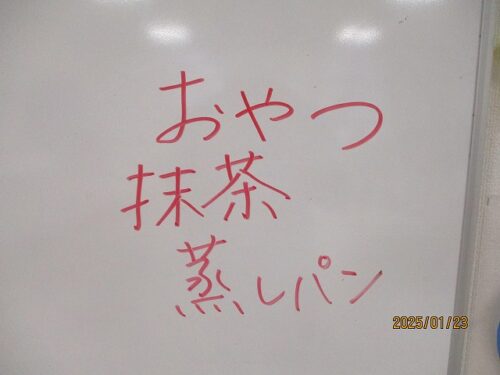 おやつ
抹茶
蒸しパン
2025/01/23